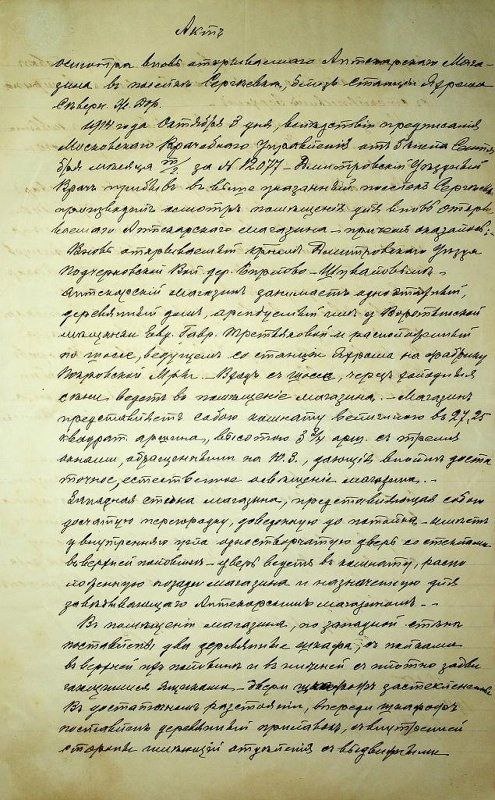 Актъ
осмотра вновь открываемаго Аптекарскаго Мага-
зина въ поселкѣ Сергѣевка, близь Станціи Яхрома
Сѣверн. Ж. Дор.
1914 года Октября 8 дня, вслѣдствіи предписанія
Московскаго Врачебнаго Управленія отъ Сентя-
бря мѣсяца за № 12077 - Дмитровскій Уѣздный
Врачъ прибылъ въ выше указанный поселокъ Сергѣевка
произвелъ осмотръ помѣщенія для вновь откры-
ваемаго Аптекарскаго магазина - причемъ оказалось:
Вновь открываемый крест. Дмитровскаго Уѣзда
Подчерковской Вол. дер. - Шувайловымъ -
Аптекарскій магазинъ занимаетъ одноэтажный,
деревянный домъ, арендуемый имъ у
мѣщанки Евд. Гавр. Третьяковой и расположенный
по шоссе, ведущемъ со станціи Яхрома на фабрику
Покровской М-ры. - Входъ съ шоссе, черезъ холодныя
сѣни ведетъ въ помѣщеніе магазина. - Магазинъ
представляетъ собою комнату величиною въ 27,25
квадрат. аршина, высотою 3 3/4 арш. съ тремя
окнами, обращенными на Ю.З., дающія вполнѣ доста
точное, естественное освѣщеніе магазина. -
Западная стѣна магазина, представляющая собою
досчатую перегородку, доведенную до потолка - имѣетъ
у внутренняго угла одностворчатую дверь со стеклами
въ верхней половинѣ - дверь ведетъ въ комнату, распо
ложенную позади магазина и назначенную для
завѣдывающаго Аптекарскимъ магазиномъ. -
Въ помѣщеніи магазина, по западной стѣнѣ
поставлены два деревянные шкафа, съ полками
въ верхней ихъ половинѣ и въ нижней съ плотно задви
гающимися ящиками - двери шкафовъ застекленныя
Въ достаточномъ разстояніи, впереди шкафовъ
поставленъ деревянный прилавокъ, съ внутренней
стороны имѣющій отдѣленія съ выдвижными